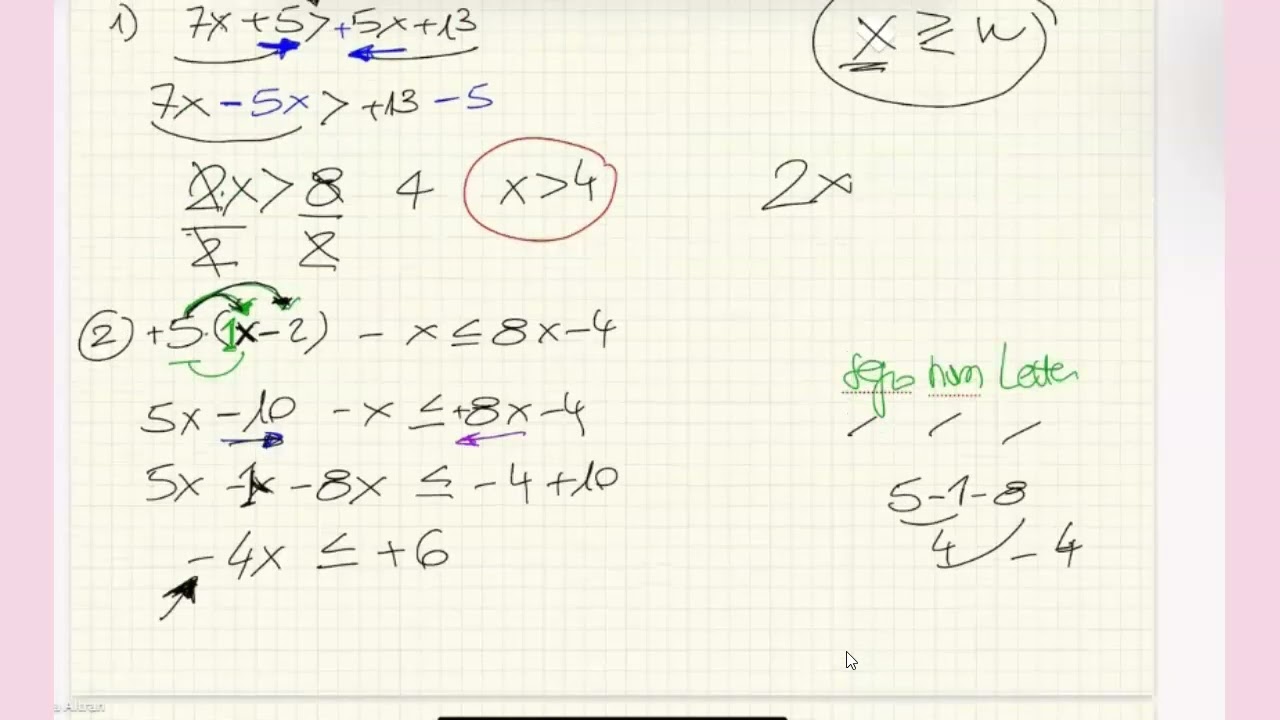 1) 7x + 5 > + 5x + 13
x ≥ n
7x - 5x > + 13 - 5
2·x > 8 4 x > 4 2x
2 2
② + 5·(1x - 2) - x ≤ 8x - 4
segno num Letter
5x - 10 - x ≤ + 8x - 4
5x - 1x - 8x ≤ - 4 + 10
5 - 1 - 8
- 4x ≤ + 6
4 - 4